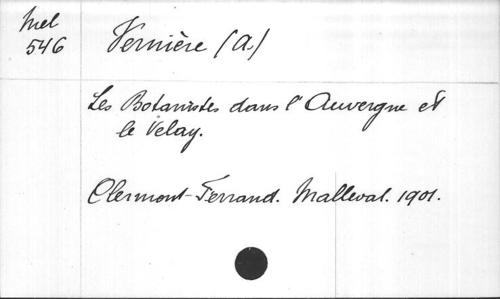 Mel
546
Vernière (A.)
Les Botanistes dans l'Auvergne et
le Velay.
Clermont-Ferrand. Malleval. 1901.